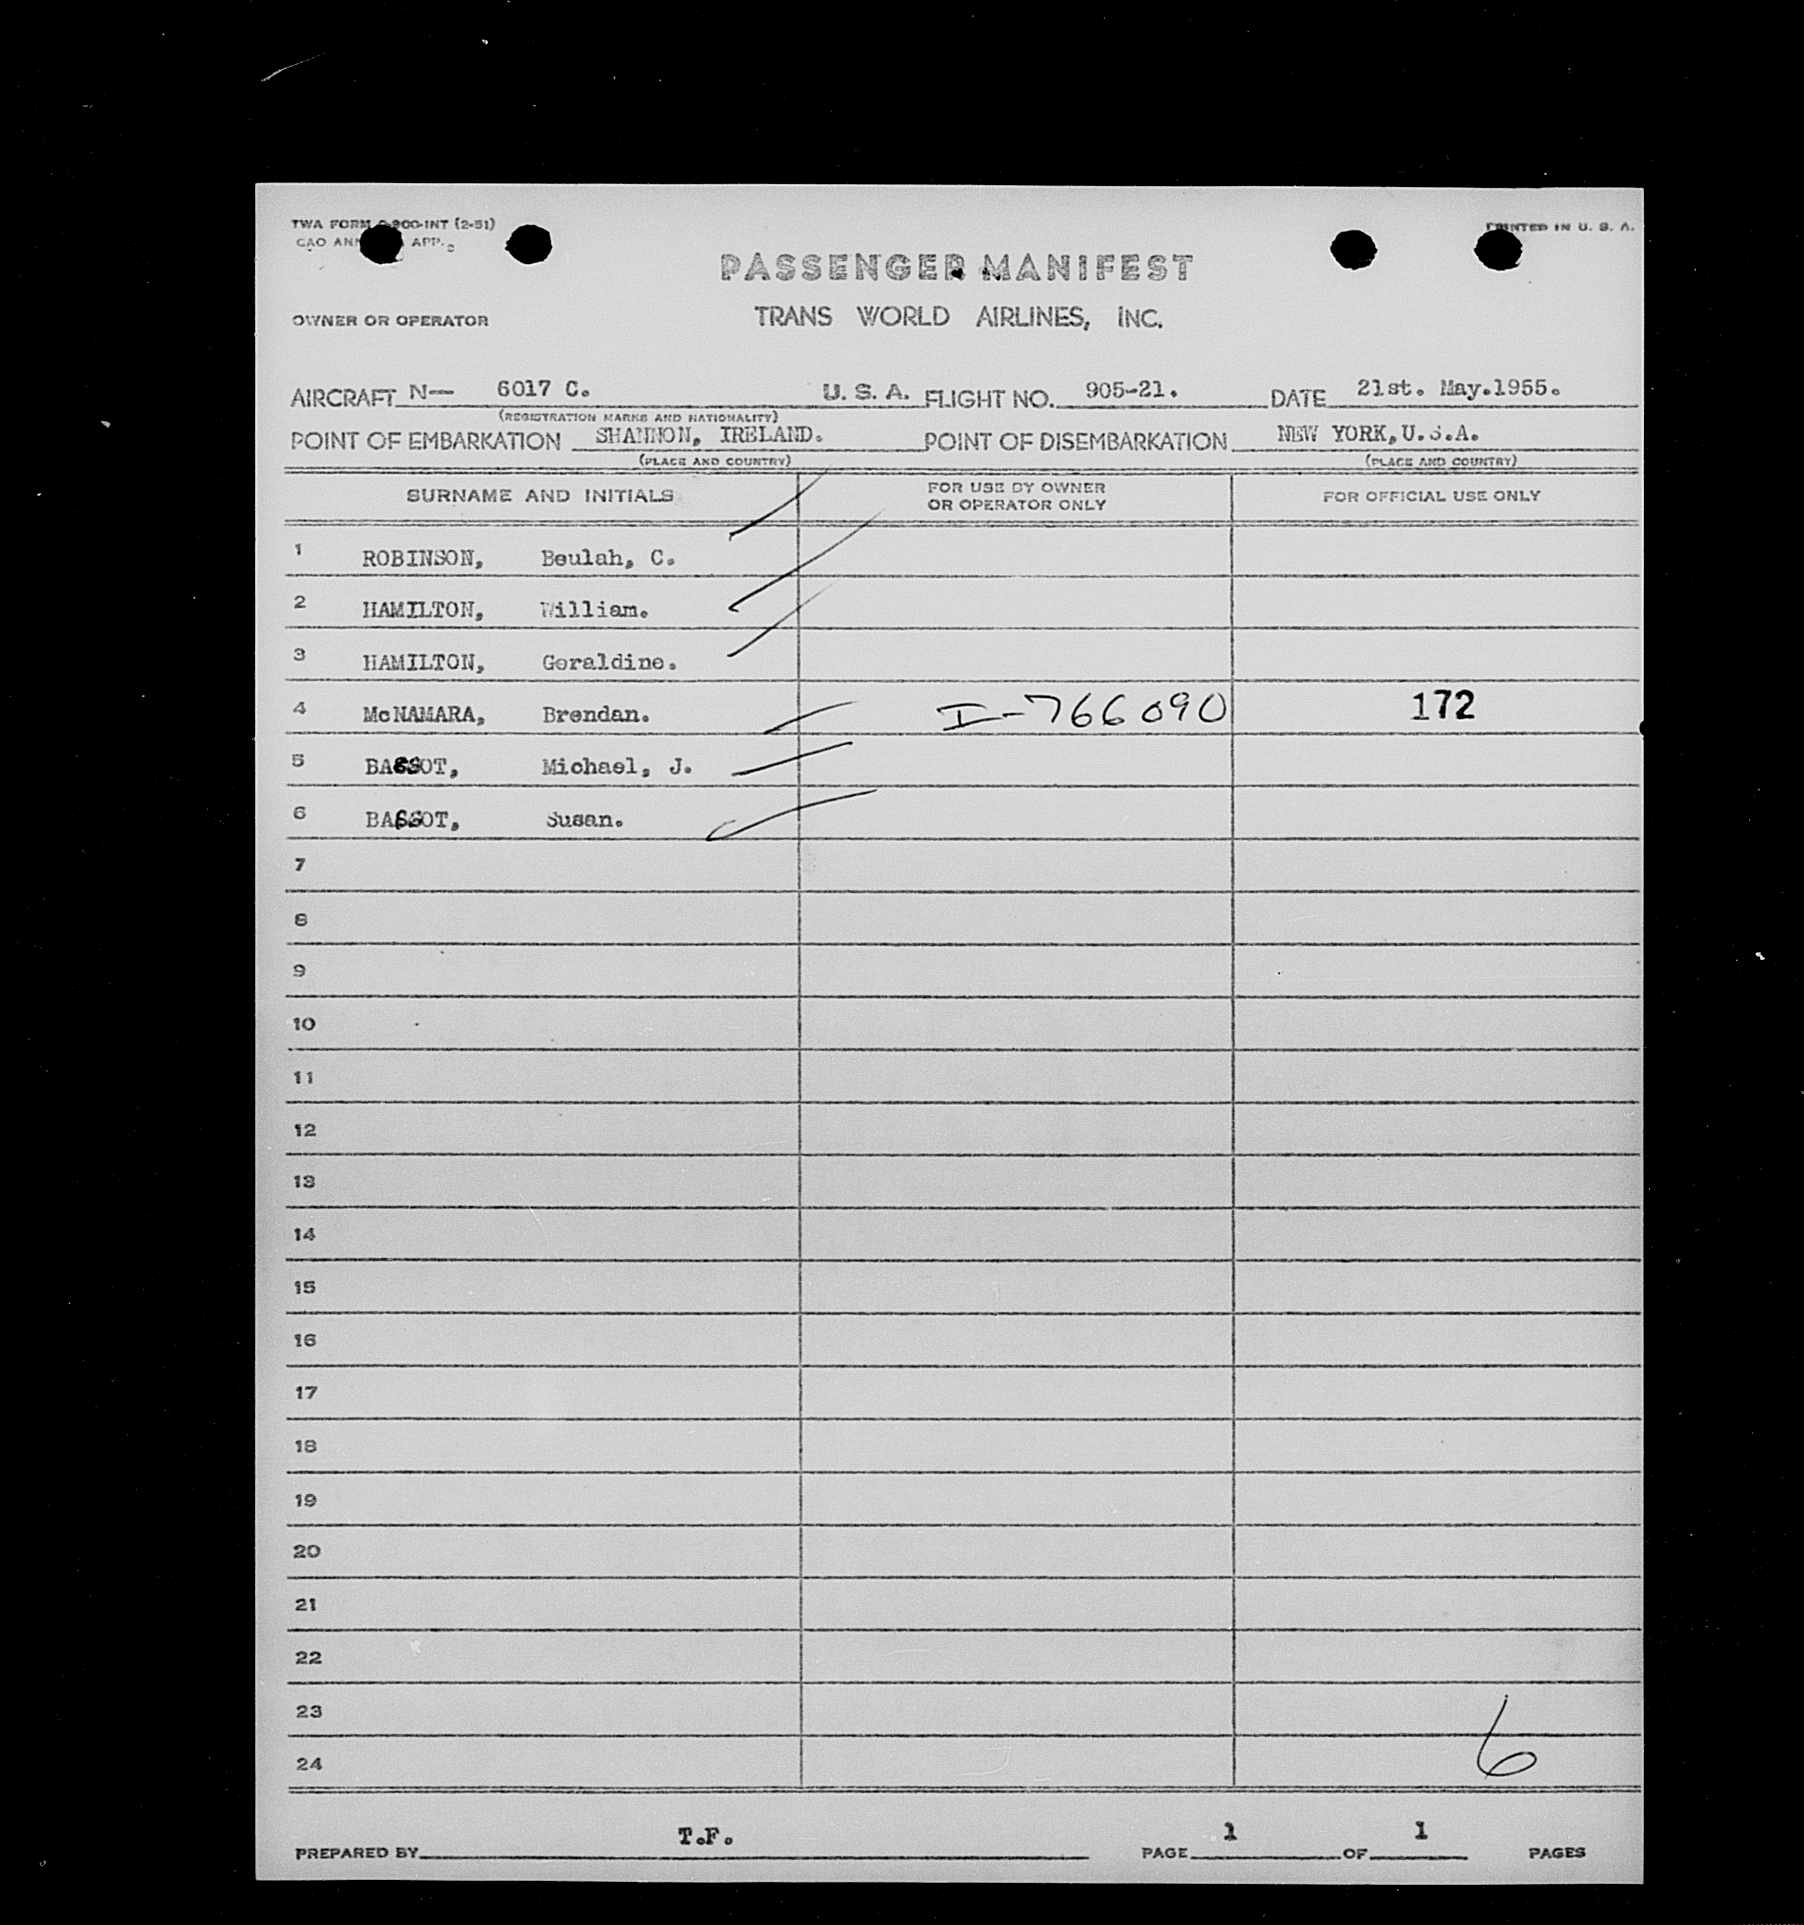 TWA FORM 900-INT (2-51)
PRINTED IN U. S. A.
APP.
PASSENGER MANIFEST
OWNER OR OPERATOR TRANS WORLD AIRLINES, INC.
AIRCRAFT N— 6017 C. U. S. A. FLIGHT NO. 905-21. DATE 21st. May.1955.
(REGISTRATION MARKS AND NATIONALITY)
POINT OF EMBARKATION SHANNON, IRELAND. POINT OF DISEMBARKATION NEW YORK,U.S.A.
(PLACE AND COUNTRY) (PLACE AND COUNTRY)
SURNAME AND INITIALS FOR USE BY OWNER OR OPERATOR ONLY FOR OFFICIAL USE ONLY
1 ROBINSON, Beulah, C.
2 HAMILTON, William.
3 HAMILTON, Geraldine.
4 McNAMARA, Brendan. I-766090 172
5 Michael, J.
6 Susan.
7
8
9
10
11
12
13
14
15
16
17
18
19
20
21
22
23
24 6
PREPARED BY T.F. PAGE 1 OF 1 PAGES